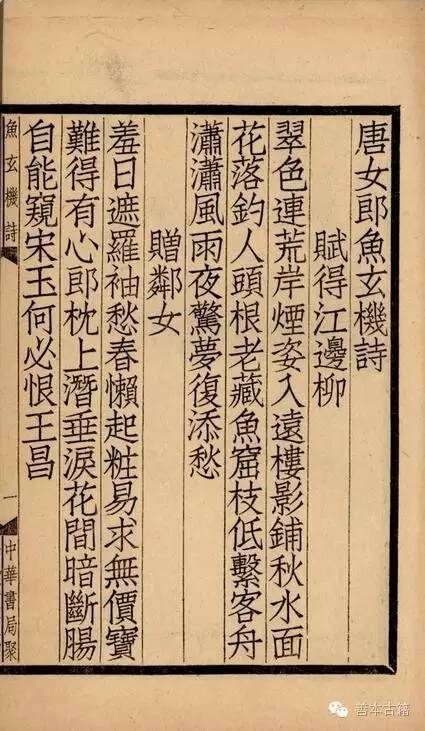 唐女郎魚玄機詩
賦得江邊柳
翠色連荒岸煙姿入遠樓影鋪秋水面
花落釣人頭根老藏魚窟枝低繫客舟
瀟瀟風雨夜驚夢復添愁
贈鄰女
羞日遮羅袖愁春懶起粧易求無價寶
難得有心郎枕上潛垂淚花間暗斷腸
自能窺宋玉何必恨王昌
魚玄機詩
一
中華書局聚
善本古籍